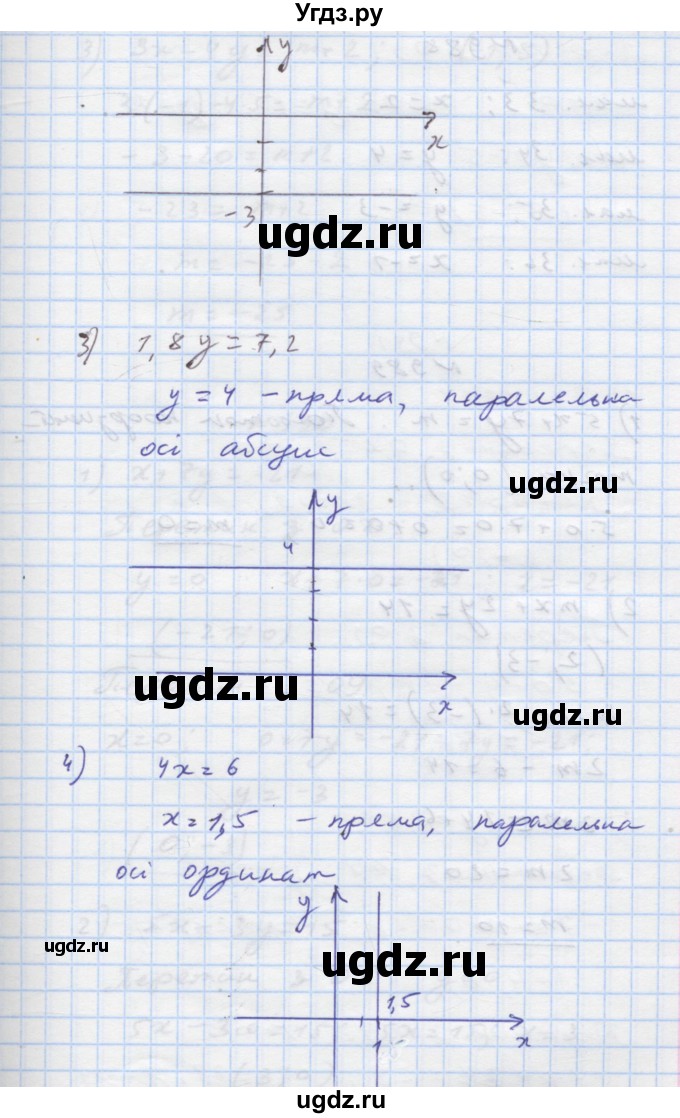 Угдз.ру
y
x
-3
ugdz.ru
3) 1,8y = 7,2
y = 4 - пряма, паралельна
осі абсцис
ugdz.ru
y
4
ugdz.ru
x
ugdz.ru
4) 4x = 6
x = 1,5 - пряма, паралельна
осі ординат
y
ugdz.ru
ugdz.ru
1,5
1
x